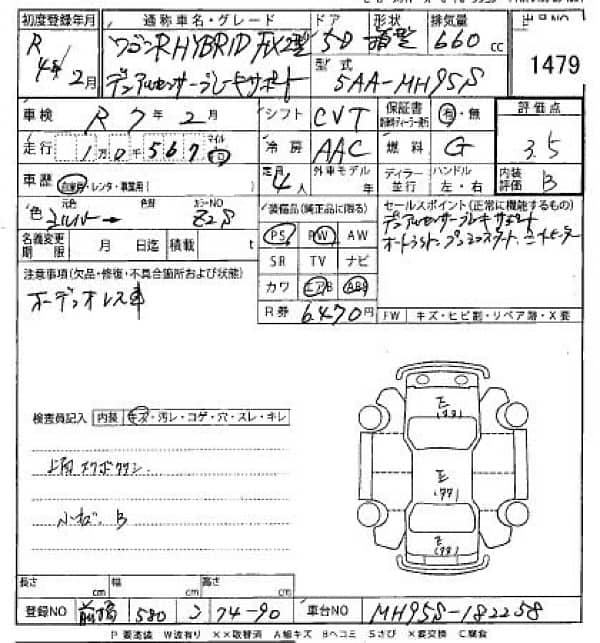 初度登録年月 通称車名・グレード ドア 形状 排気量 出品NO
R 4年 2月 ワゴンR HYBRID FX 2型 5D 箱型 660 cc 1479
デュアルセンサーブレーキサポート 型式 5AA-MH95S
車検 R 7年 2月 シフト CVT 保証書 有・無 評価点 3.5
走行 1万0567 マイル 冷房 AAC 燃料 G
車歴 自家用・レンタ・事業用( ) 定員 4人 外車モデル 年 ディラー 並行 ハンドル 左・右 内装評価 B
色 元色 シルバー 色替 カラーNO Z2S 装備品(純正品に限る) セールスポイント(正常に機能するもの)
デュアルセンサーブレーキサポート
名義変更期限 月 日迄 積載 t PS PW AW
SR TV ナビ
注意事項(欠品・修復・不具合箇所および状態) カワ エアB ABS
オーディオレス車 R券 6470円 FW キズ・ヒビ割・リペア跡・X要
検査員記入 内装 キズ・汚レ・コゲ・穴・スレ・キレ
小キズ、B
E
(99)
E
(99)
E
(99)
長さ cm 幅 cm 高さ cm
登録NO 前橋 580 74-90 車台NO MH95S-182258
P 要塗装 W波有り ××取替済 A線キズ Bヘコミ Sさび ×要交換 C腐食